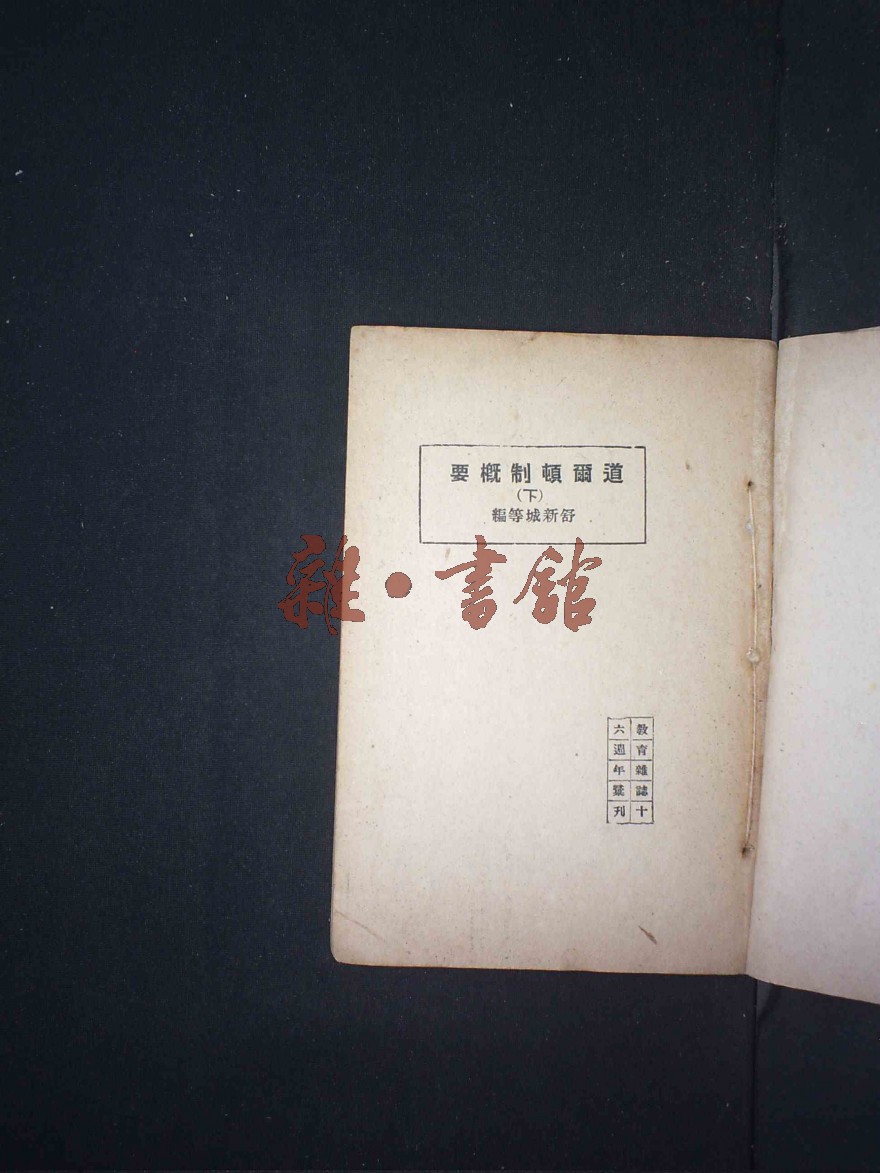 道爾頓制概要
(下)
舒新城等編
雜·書館
教育雜誌十
六週年彙刊